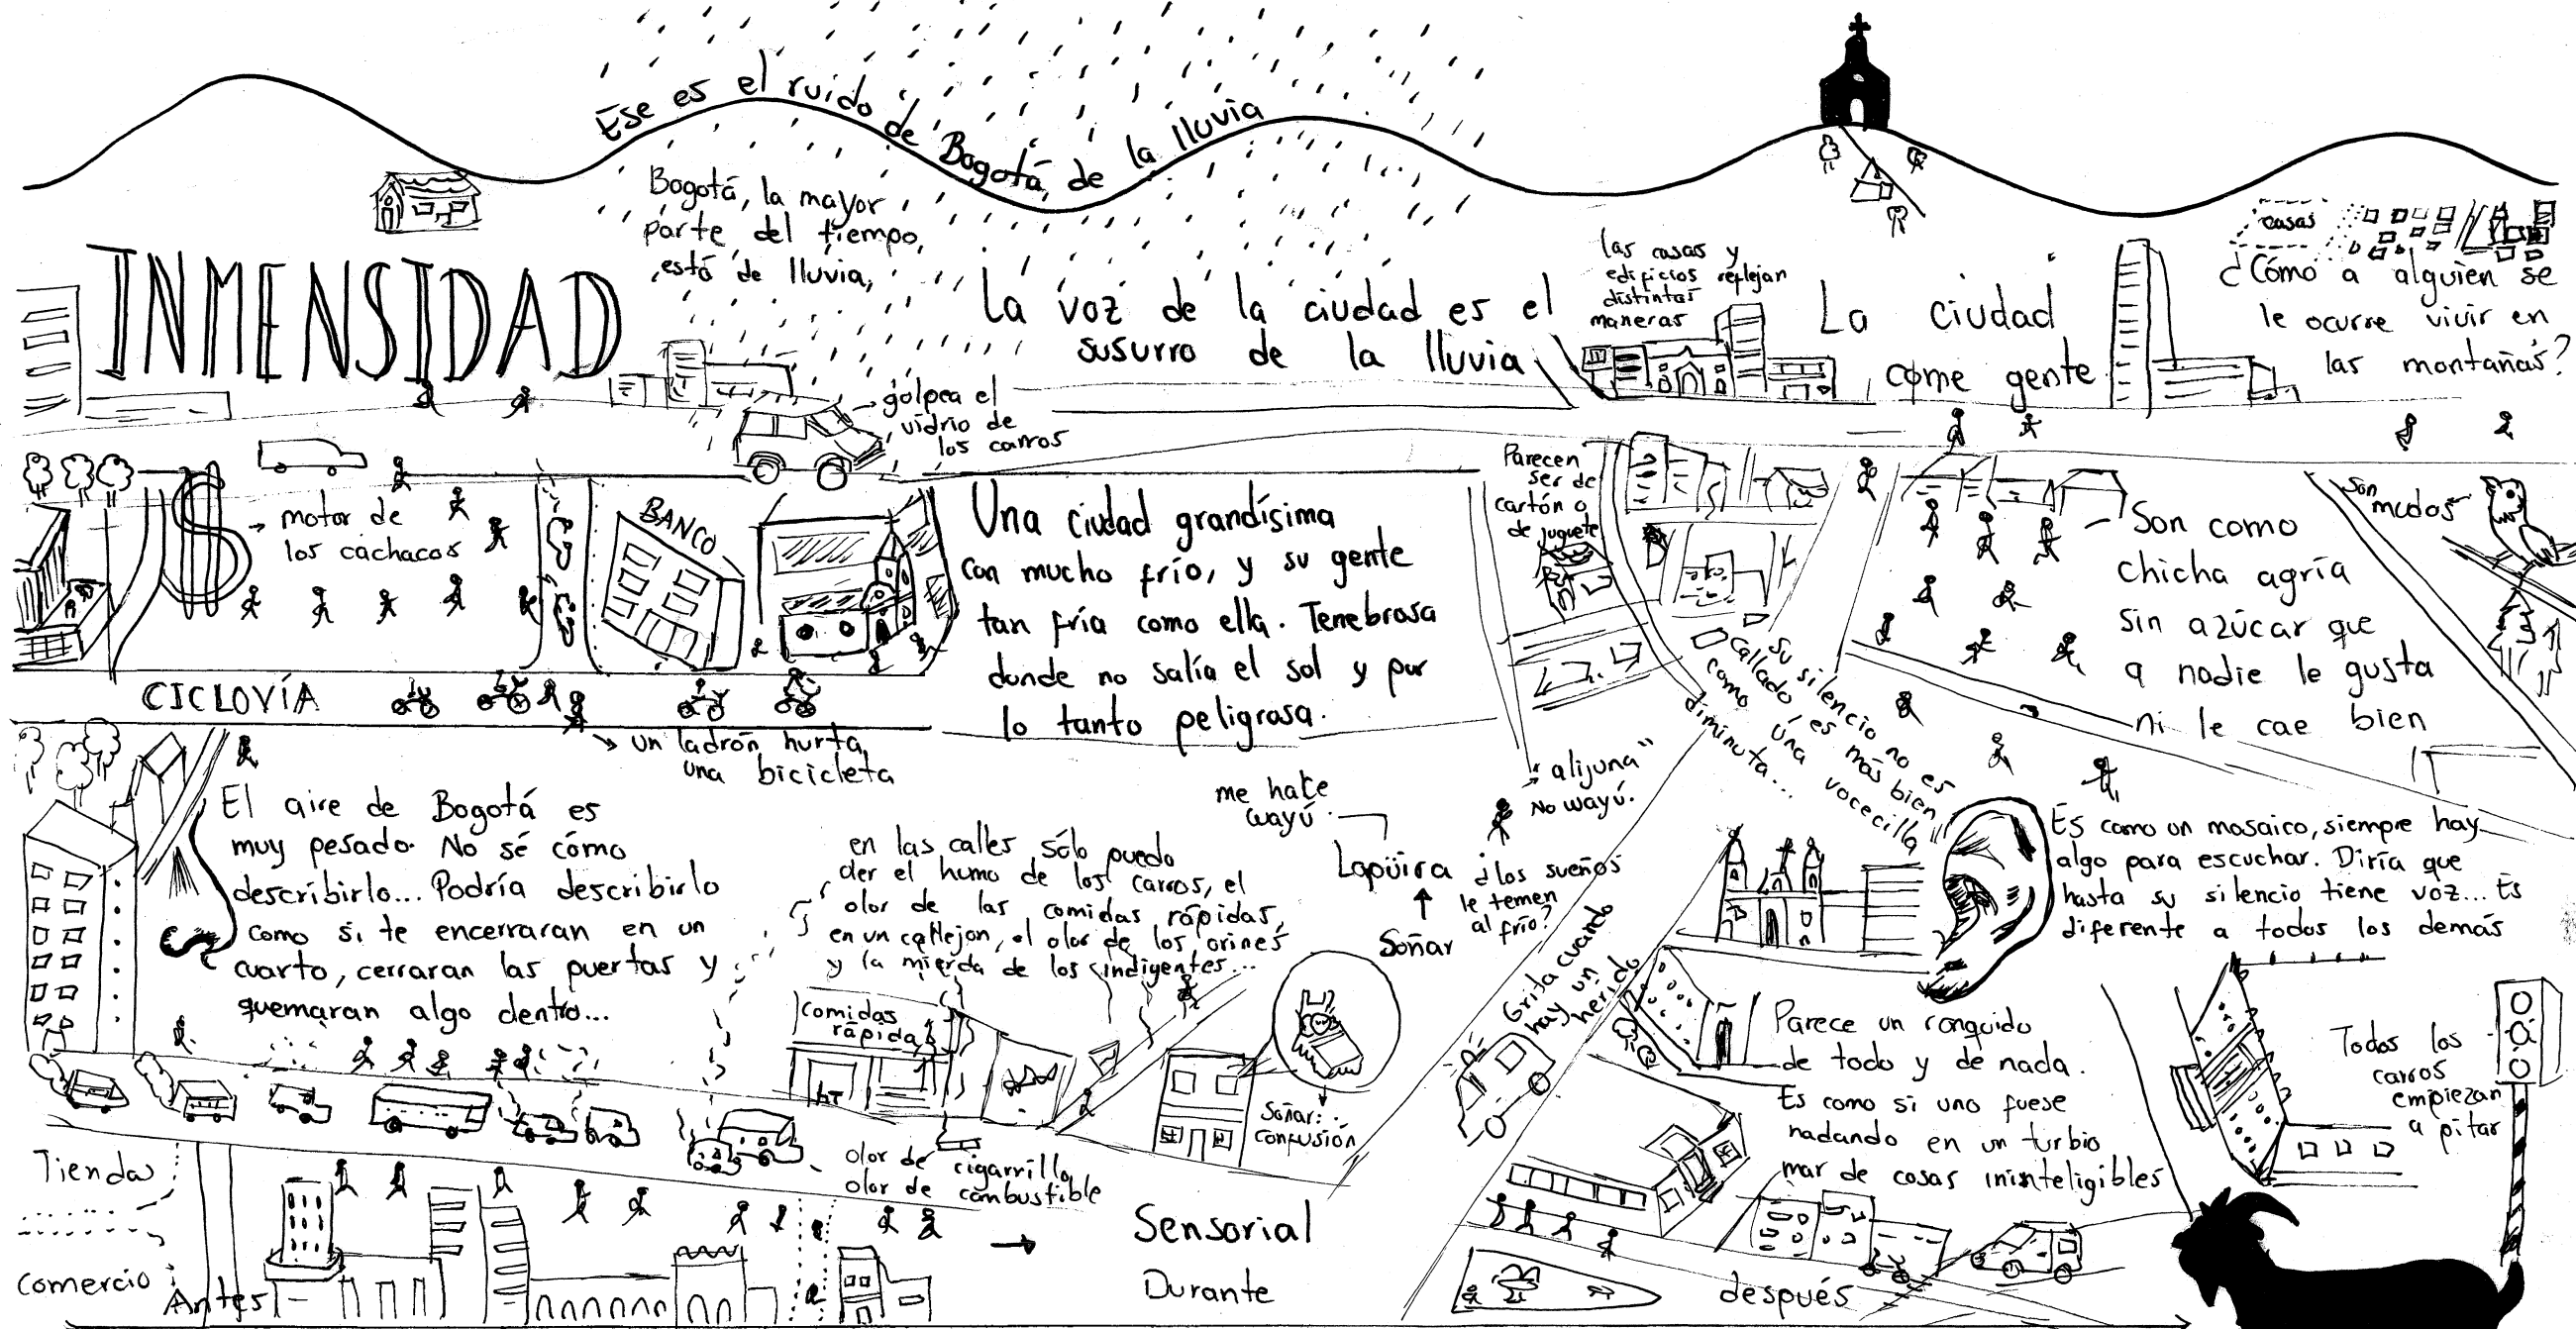 Ese es el ruido de Bogotá, de la lluvia
Bogotá, la mayor
parte del tiempo,
está de lluvia,
INMENSIDAD
La voz de la ciudad es el
susurro de la lluvia
las casas y
edificios reflejan
distintas
maneras
La ciudad
come gente
casas
¿Cómo a alguien se
le ocurre vivir en
las montañas?
golpea el
vidrio de
los carros
$
motor de
los cachacos
BANCO
Una ciudad grandísima
con mucho frío, y su gente
tan fría como ella. Tenebrosa
donde no salía el sol y por
lo tanto peligrosa.
Parecen
ser de
cartón o
de juguete
Son
mudos
Son como
chicha agría
sin azúcar que
a nadie le gusta
ni le cae bien
CICLOVÍA
un ladrón hurta
una bicicleta
Su silencio no es
callado, es más bien
como una vocecilla
diminuta...
El aire de Bogotá es
muy pesado. No sé cómo
describirlo... Podría describirlo
como si te encerraran en un
cuarto, cerraran las puertas y
quemaran algo dentro...
en las calles sólo puedo
oler el humo de los carros, el
olor de las comidas rápidas,
en un callejon, el olor de los orines
y la mierda de los indigentes...
me hate
wayú
Lapüira
Soñar
alijuna"
No wayú.
¿los sueños
le temen
al frío?
Es como un mosaico, siempre hay
algo para escuchar. Diría que
hasta su silencio tiene voz... Es
diferente a todos los demás
Grita cuando
hay un
herido
comidas
rápidas
Soñar:
confusión
Parece un ronquido
de todo y de nada.
Es como si uno fuese
nadando en un turbio
mar de cosas ininteligibles
Todos los
carros
empiezan
a pitar
olor de cigarrillo,
olor de combustible
Tienda
comercio
Antes
Sensorial
Durante
después